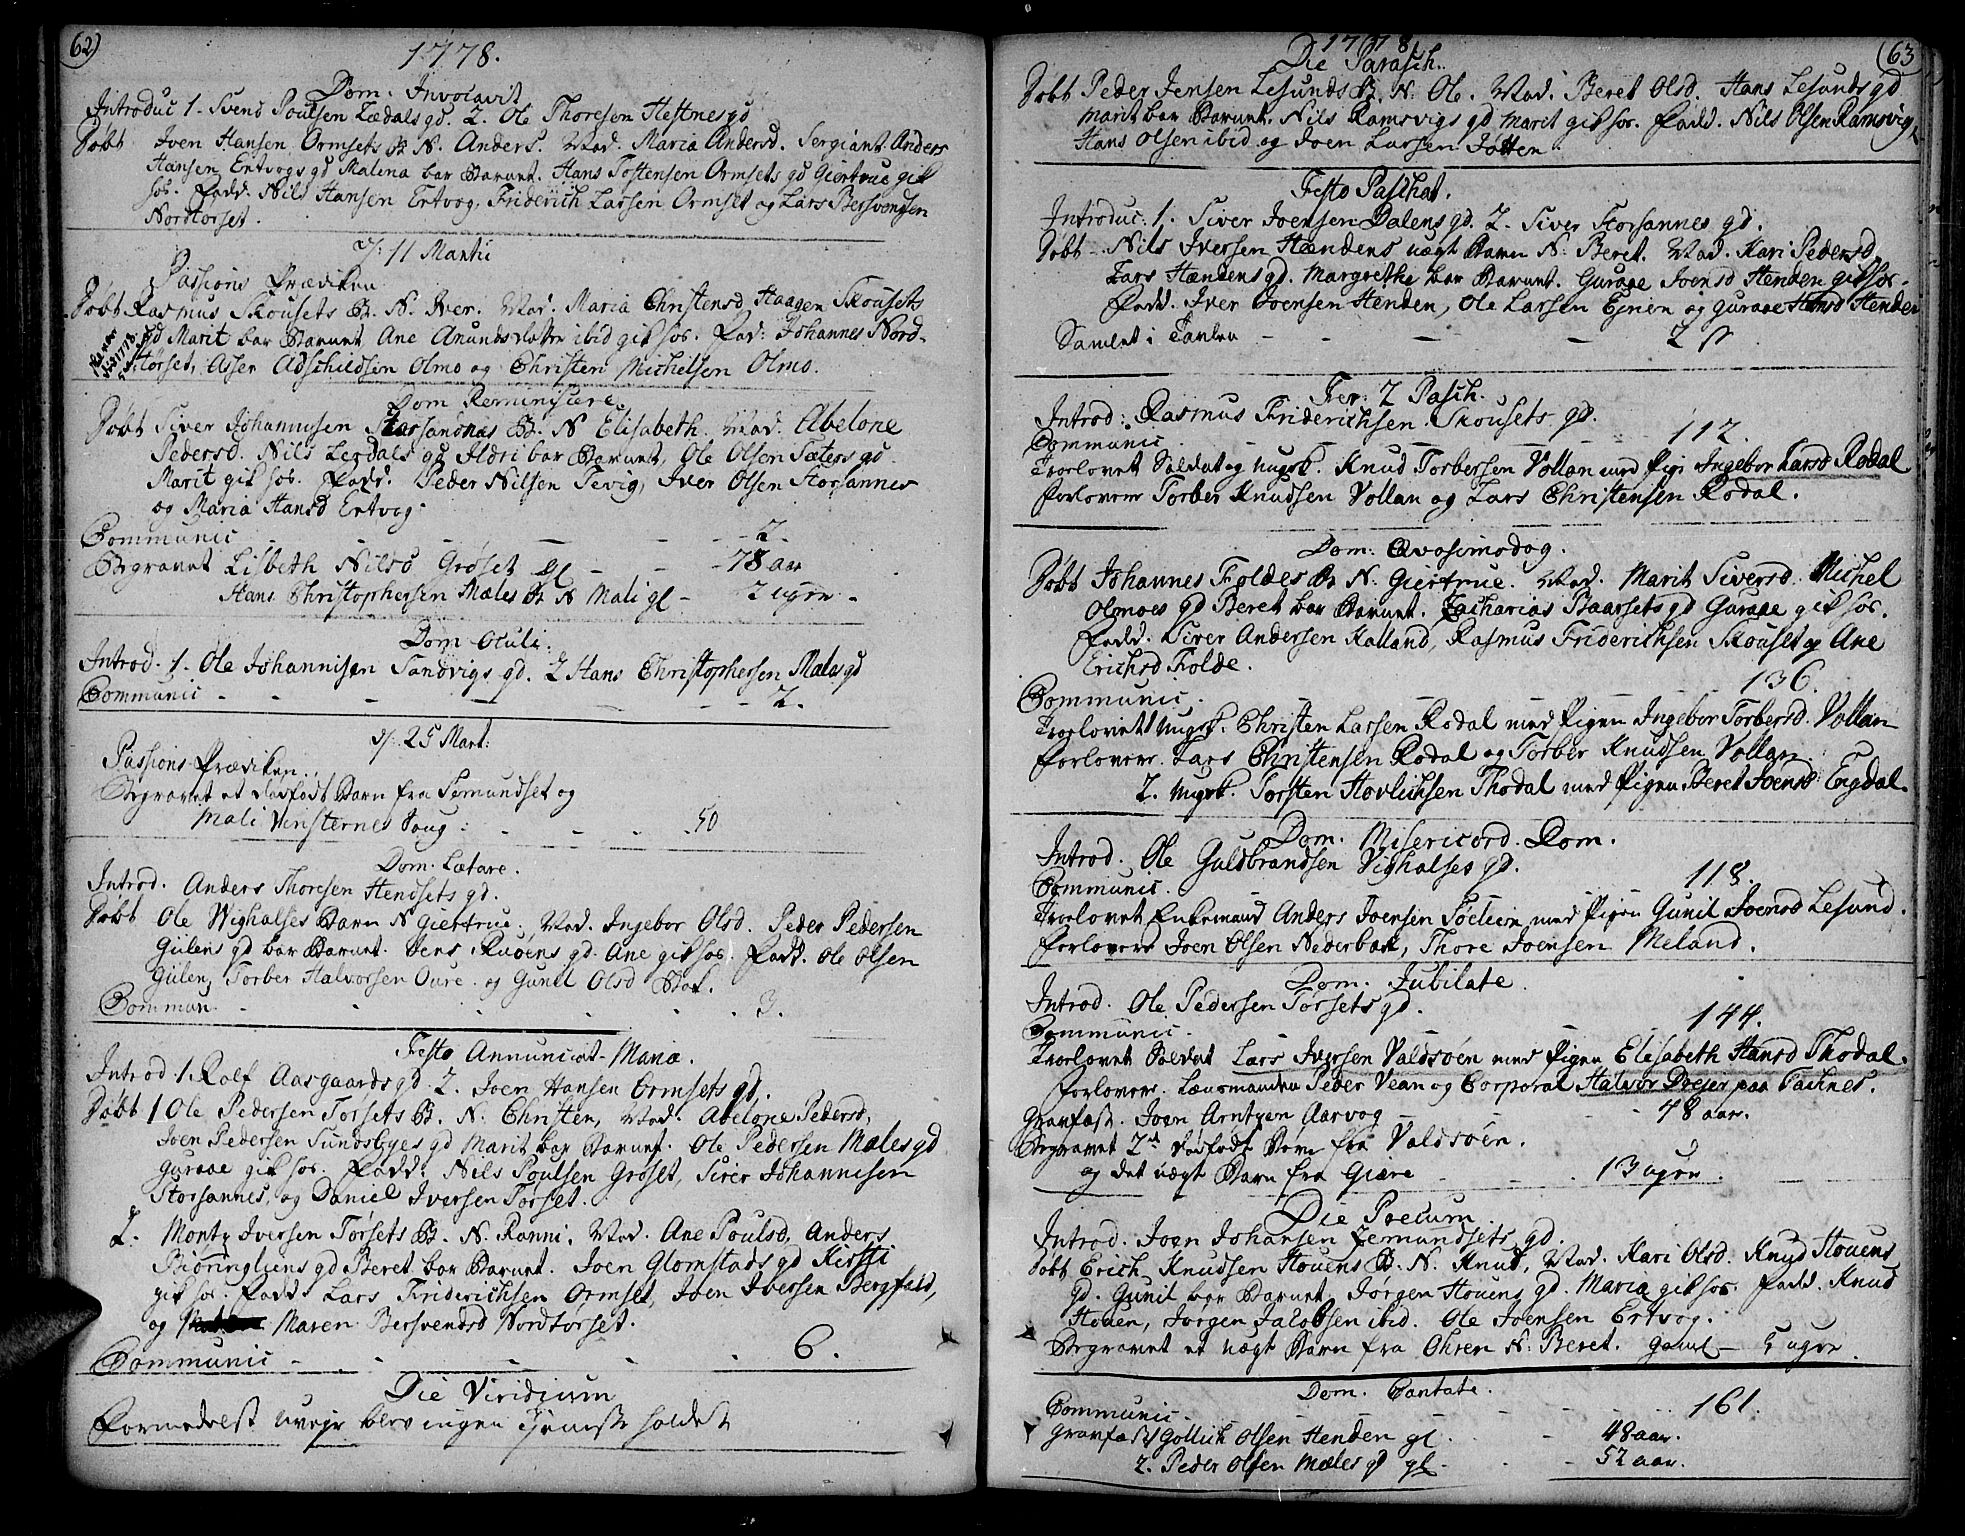 62)
1778.
Dom. Invocavit
Introduc 1. Svend Poulsen Lædals gd. 2. Ole Thoresen Hestnes gd
Døbt Joen Hansen Ormsets B. N. Anders. Mad. Maria Andersd. Sergiant Anders
Hansen Ertvogs gd Malena bar Barnet. Hans Tostensen Ormsets gd Giertrue gik
hos. Fadd. Nils Hansen Ertvog, Friderich Larsen Ormset og Lars Bersvendsen
Nordtorset.
d: 11 Martii
Passions Prædiken
Døbt Rasmus Skousets B. N. Iver. Mad. Maria Christensd. Haagen Skousets
gd Marit bar Barnet Ane Amundsdatter ibid gik hos. Fad: Johannes Nord-
törset, Asser Adschildsen Olmo og Christen Michelsen Olmo.
Dom Reminiscere.
Døbt Siver Johannesen Storsandnes B. N Elisabeth. Mad. Abelone
Pedersd. Nils Leqdals gd Ildri bar Barnet, Ole Olsen Sæters gd
Marit gik hos. Fadd. Peder Nilsen Tevig, Iver Olsen Storsannes
og Maria Hansd Ertvog.
Communic - - - - 2.
Begravet Lisbeth Nilsd Grøset gl - - 78 aar
Hans Christophersen Mæles B. N Mali gl - 2 uger -
Dom Oculi.
Introd. 1. Ole Johannisen Sandvigs gd. 2 Hans Christophersen Males gd
Communic - - - - 2.
d: 25 Mart:
Passions Prædiken.
Begravet et dødfødt Barn fra Semundset og
Mali Vinsternes Joug: - - - 50
Dom. Lætare.
Introd. Anders Thoresen Hendsets gd.
Døbt Ole Wighalses Barn N Giertrue. Mad. Ingebor Olsd. Peder Pedersen
Gulens gd bar Barnet. Jens Ruøens gd. Ane gik hos. Fadd. Ole Olsen
Gulen, Torber Halvorsen Oure. og Gunil Olsd Stok.
Commun - - - - 3.
Festo Annunciat- Mariæ.
Introd 1. Rolf Aasgaards gd. 2. Joen Hansen Ormsets gd.
Døbt 1 Ole Pedersen Torsets B. N. Christen, Mad. Abelone Pedersd,
Joen Pedersen Sundsbyes gd Marit bar Barnet. Ole Pedersen Males gd
Guraae gik hos. Fadd. Nils Poulsen Grøset, Siver Johannisen
Storsannes, og Daniel Iversen Torset.
2. Monty Iversen Törsets B. N. Ranni. Mad. Ane Poulsd. Anders
Biøringliens gd Beret bar Barnet. Joen Glomstads gd Kirsti
gik hos. Fadd. Lars Friderichsen Ormset, Joen Iversen Bergfald,
og Maren Bersvendsd Nordtørset.
Communic - - - - 6.
Die Viridium
Formedelst uvejr blev ingen Tjeneste holdet
1778
(63
Die Parasch.
Døbt Peder Jensen Lesunds B. N. Ole. Mad. Beret Olsd. Hans Lesunds gd
Marit bar Barnet. Nils Ramsvigs gd Marit gik hos. Fadd. Nils Olsen Ramsvig
Hans Olsen ibid og Joen Larsen
Festo Paschat.
Introduc: 1. Siver Joensen Dalens gd. 2. Siver Storsannes gd.
Døbt Nils Iversen Hændens uægt Barn N. Beret. Mad. Kari Pedersd
Lars Hændens gd. Margrethe bar Barnet. Guraae Joensd Henden gik hos.
Fadd. Iver Joensen Henden, Ole Larsen Egnen og Guraae Hansd Henden
Samlet i Tavlen - - - 2
Fer: 2 Pasch.
Introd: Rasmus Friderichsen Skousets gd.
Communic - - - 112.
Trolovet Soldat og ungk. Knud Torbersen Vollan med Pige Ingebor Larsd Rodal
Forlovere Torber Knudsen Vollan og Lars Christensen Rodal.
Dom: Qvasimodog.
Døbt Johannes Foldes B N. Giertrue. Mad. Marit Siversd. Michel
Olmoes gd Beret bar Barnet. Zacharias Baarsets gd Guraae gik hos.
Fadd. Siver Andersen Kalland, Rasmus Friderichsen Skouset og Ane
Erichsd Folde.
Communic. - - - 136.
Trolovet 1 ungk. Christen Larsen Rodal med Pigen Ingebor Torbersd. Vollan
Forlovere Lars Christensen Rodal og Torber Knudsen Vollan
2. ungk. Torsten Hovlichsen Thodal med Pigen Beret Joensd Engdal.
Dom. Misericord. Dom.
Introd. Ole Guldbrandsen Vighalses gd.
Communic. 118.
Trolovet Enkemand Anders Joensen med Pigen Gunil Joensd Lesund.
Forlovere Joen Olsen Nederbæk, Thore Joensen Meland.
Dom. Jubilate.
Introd. Ole Pedersen Torsets gd.
Communic. - - - 144.
Trolovet Soldat Lars Iversen Valdsöen med Pigen Elisabeth Hansd Thodal.
Forlovere. Lænsmanden Peder Vean og Corporal Halvor Doeser paa Tachnes.
Gravfæst. Joen Arntzen Aarvog - - - 48 aar.
Begravet 2de dødfødt Børn fra Valdsøen.
og det uægt Barn fra Giære - - 13 uger.
Die Precum.
Introd. Joen Johansen Zemundsets gd.
Døbt Erich Knudsen Houens B. N. Knud, Mad. Kari Olsd. Knud Houens
gd. Gunil bar Barnet, Jørgen Houens gd. Maria gik hos. Fadd. Knud
Houen, Jørgen Jacobsen ibid. Ole Joensen Ertvog.
Begravet et uægt Barn fra Ohren N. Beret. gaml - 5 uger.
Dom. Cantate.
Communic. - - - 161.
Gravfæst Gollick Olsen Henden gl. - - 48 aar.
2. Peder Olsen Mæles gd gl. - - 52 aar.